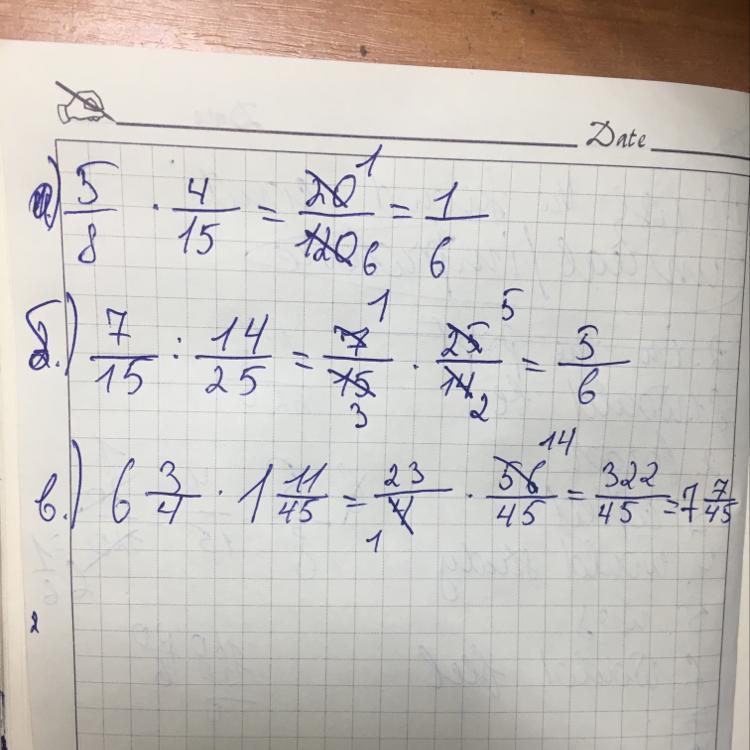 Date
а) 5/8 · 4/15 = 20/120 1 6 = 1/6
б.) 7/15 : 14/25 = 7/15 1 3 · 25/14 5 2 = 5/6
в.) 6 3/4 · 1 11/45 = 23/4 1 · 56/45 14 = 322/45 = 7 7/45